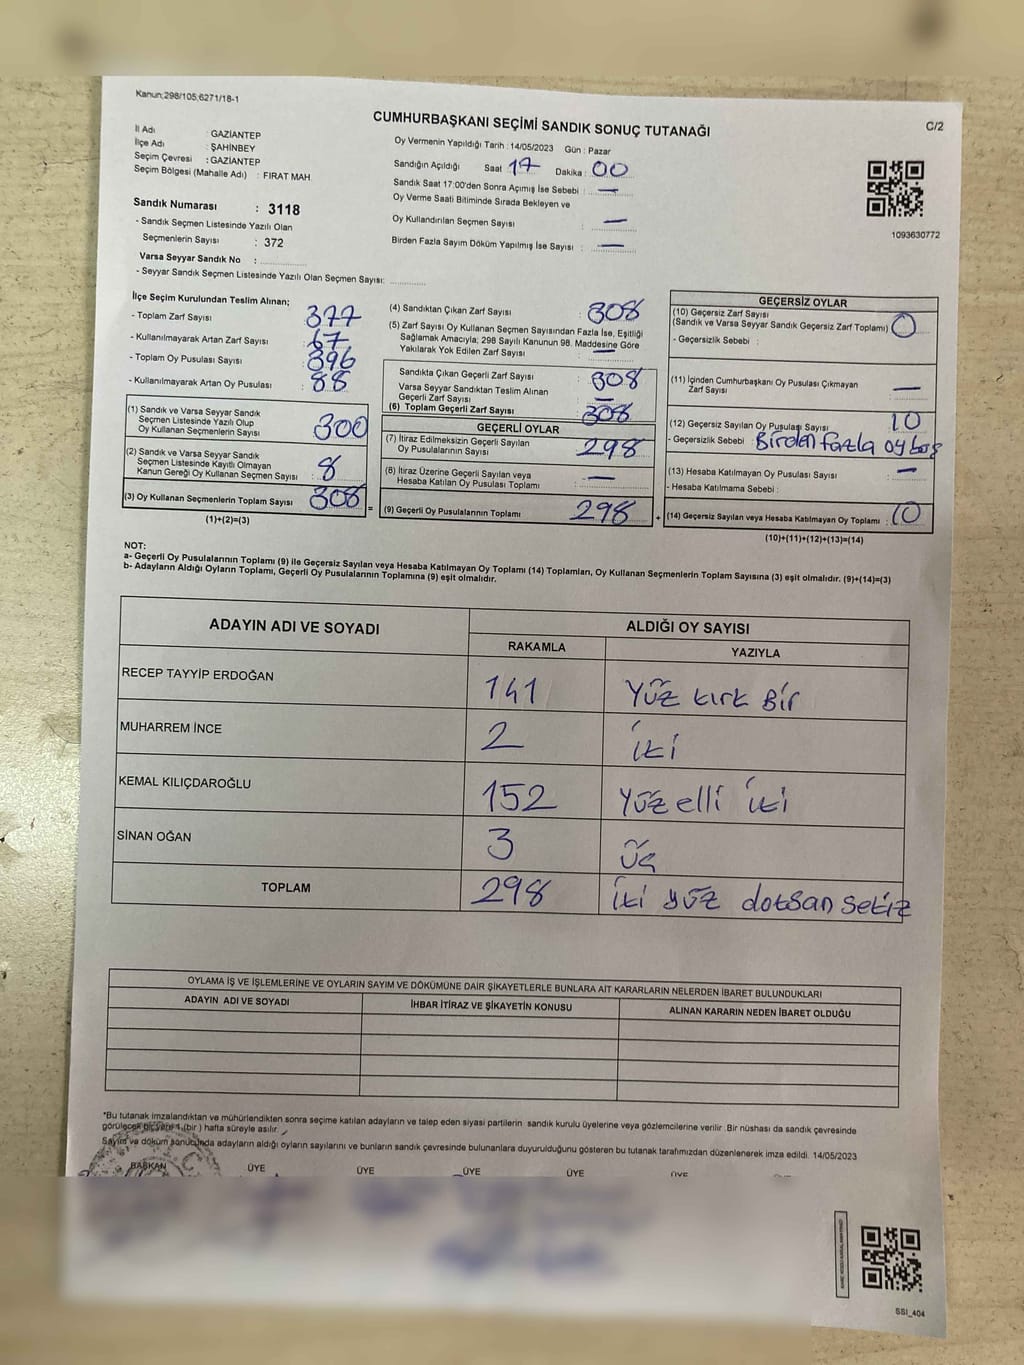 Kanun:298/105,6271/18-1
CUMHURBAŞKANI SEÇİMİ SANDIK SONUÇ TUTANAĞI
C/2
İl Adı : GAZİANTEP
İlçe Adı : ŞAHİNBEY
Seçim Çevresi : GAZİANTEP
Seçim Bölgesi (Mahalle Adı) : FIRAT MAH.
Oy Vermenin Yapıldığı Tarih : 14/05/2023 Gün : Pazar
Sandığın Açıldığı Saat 17 Dakika : 00
Sandık Saat 17:00'den Sonra Açımış İse Sebebi : —
Oy Verme Saati Bitiminde Sırada Bekleyen ve
Oy Kullandırılan Seçmen Sayısı : —
Birden Fazla Sayım Döküm Yapılmış İse Sayısı : —
1093630772
Sandık Numarası : 3118
- Sandık Seçmen Listesinde Yazılı Olan
Seçmenlerin Sayısı : 372
Varsa Seyyar Sandık No :
- Seyyar Sandık Seçmen Listesinde Yazılı Olan Seçmen Sayısı:
İlçe Seçim Kurulundan Teslim Alınan;
- Toplam Zarf Sayısı : 377
- Kullanılmayarak Artan Zarf Sayısı : 67
- Toplam Oy Pusulası Sayısı : 396
- Kullanılmayarak Artan Oy Pusulası : 88
(1) Sandık ve Varsa Seyyar Sandık
Seçmen Listesinde Yazılı Olup
Oy Kullanan Seçmenlerin Sayısı : 300
(2) Sandık ve Varsa Seyyar Sandık
Seçmen Listesinde Kayıtlı Olmayan
Kanun Gereği Oy Kullanan Seçmen Sayısı : 8
(3) Oy Kullanan Seçmenlerin Toplam Sayısı : 308
(1)+(2)=(3)
(4) Sandıktan Çıkan Zarf Sayısı : 308
(5) Zarf Sayısı Oy Kullanan Seçmen Sayısından Fazla İse, Eşitliği
Sağlamak Amacıyla; 298 Sayılı Kanunun 98. Maddesine Göre
Yakılarak Yok Edilen Zarf Sayısı : —
Sandıkta Çıkan Geçerli Zarf Sayısı : 308
Varsa Seyyar Sandıktan Teslim Alınan
Geçerli Zarf Sayısı : —
(6) Toplam Geçerli Zarf Sayısı : 308
GEÇERLİ OYLAR
(7) İtiraz Edilmeksizin Geçerli Sayılan
Oy Pusulalarının Sayısı : 298
(8) İtiraz Üzerine Geçerli Sayılan veya
Hesaba Katılan Oy Pusulası Toplamı : —
(9) Geçerli Oy Pusulalarının Toplamı : 298
GEÇERSİZ OYLAR
(10) Geçersiz Zarf Sayısı
(Sandık ve Varsa Seyyar Sandık Geçersiz Zarf Toplamı) : 0
- Geçersizlik Sebebi :
(11) İçinden Cumhurbaşkanı Oy Pusulası Çıkmayan
Zarf Sayısı : —
(12) Geçersiz Sayılan Oy Pusulası Sayısı : 10
- Geçersizlik Sebebi : Birden fazla oy boş
(13) Hesaba Katılmayan Oy Pusulası Sayısı : —
- Hesaba Katılmama Sebebi :
(14) Geçersiz Sayılan veya Hesaba Katılmayan Oy Toplamı : 10
(10)+(11)+(12)+(13)=(14)
NOT:
a- Geçerli Oy Pusulalarının Toplamı (9) ile Geçersiz Sayılan veya Hesaba Katılmayan Oy Toplamı (14) Toplamları, Oy Kullanan Seçmenlerin Toplam Sayısına (3) eşit olmalıdır. (9)+(14)=(3)
b- Adayların Aldığı Oyların Toplamı, Geçerli Oy Pusulalarının Toplamına (9) eşit olmalıdır.
ADAYIN ADI VE SOYADI ALDIĞI OY SAYISI
RAKAMLA YAZIYLA
RECEP TAYYİP ERDOĞAN 141 Yüz kırk Bir
MUHARREM İNCE 2 iki
KEMAL KILIÇDAROĞLU 152 Yüz elli iki
SİNAN OĞAN 3 üç
TOPLAM 298 iki yüz doksan sekiz
OYLAMA İŞ VE İŞLEMLERİNE VE OYLARIN SAYIM VE DÖKÜMÜNE DAİR ŞİKAYETLERLE BUNLARA AİT KARARLARIN NELERDEN İBARET BULUNDUKLARI
ADAYIN ADI VE SOYADI İHBAR İTİRAZ VE ŞİKAYETİN KONUSU ALINAN KARARIN NEDEN İBARET OLDUĞU
*Bu tutanak imzalandıktan ve mühürlendikten sonra seçime katılan adayların ve talep eden siyasi partilerin sandık kurulu üyelerine veya gözlemcilerine verilir. Bir nüshası da sandık çevresinde
görülecek bir yere 1 (bir) hafta süreyle asılır.
Sayım ve döküm sonucunda adayların aldığı oyların sayılarını ve bunların sandık çevresinde bulunanlara duyurulduğunu gösteren bu tutanak tarafımızdan düzenlenerek imza edildi. 14/05/2023
BAŞKAN ÜYE ÜYE ÜYE ÜYE ÜYE
SSI_404